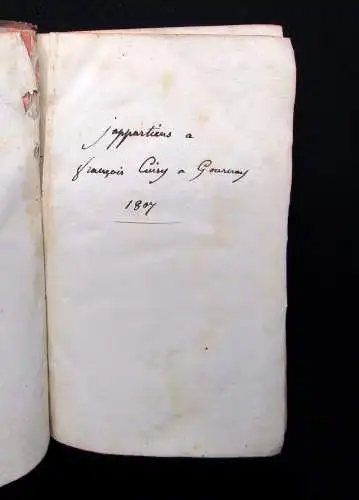 j'appartiens a
françois Cuisy a Gournay
1807